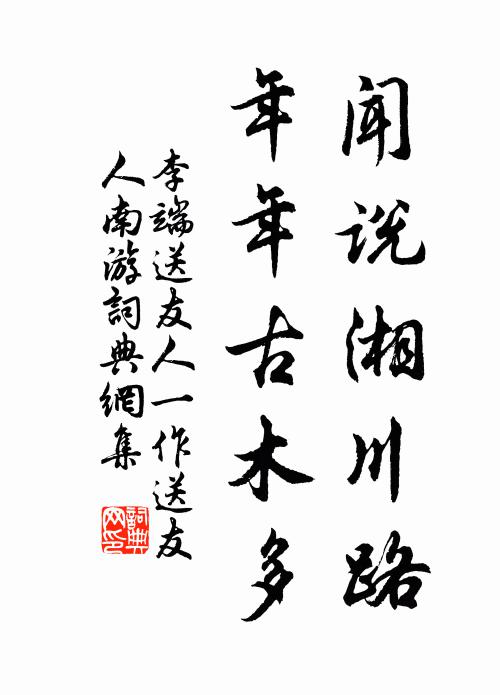 闻说湘川路
年年古木多
李端送友人一作送友
人南游詞典網集
詞典网印